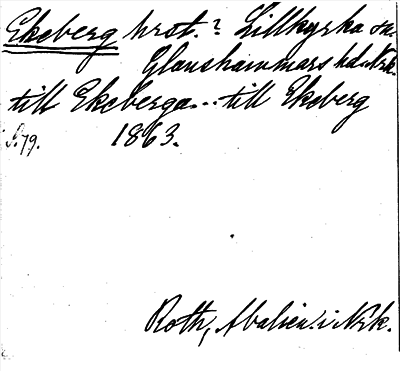 Ekeberg hrst.? Lillkyrka sn.
Glanshammars hd. Nrk.
till Ekeberga... till Ekeberg
S. 79. 1863.
Roth, i Nrk.